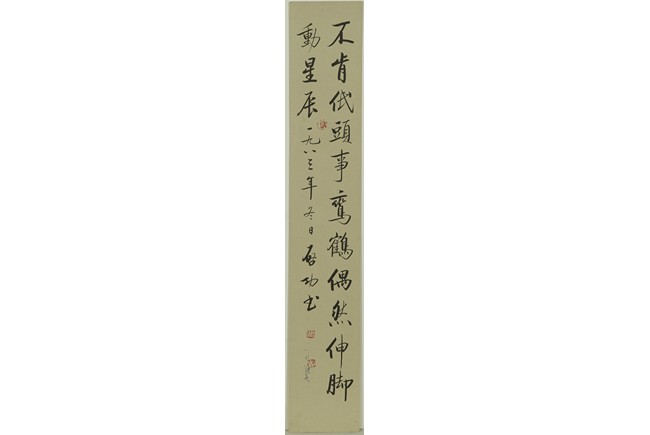 不肯低頭事鸞鶴偶然伸脚
動星辰一九八三年冬日啓功書